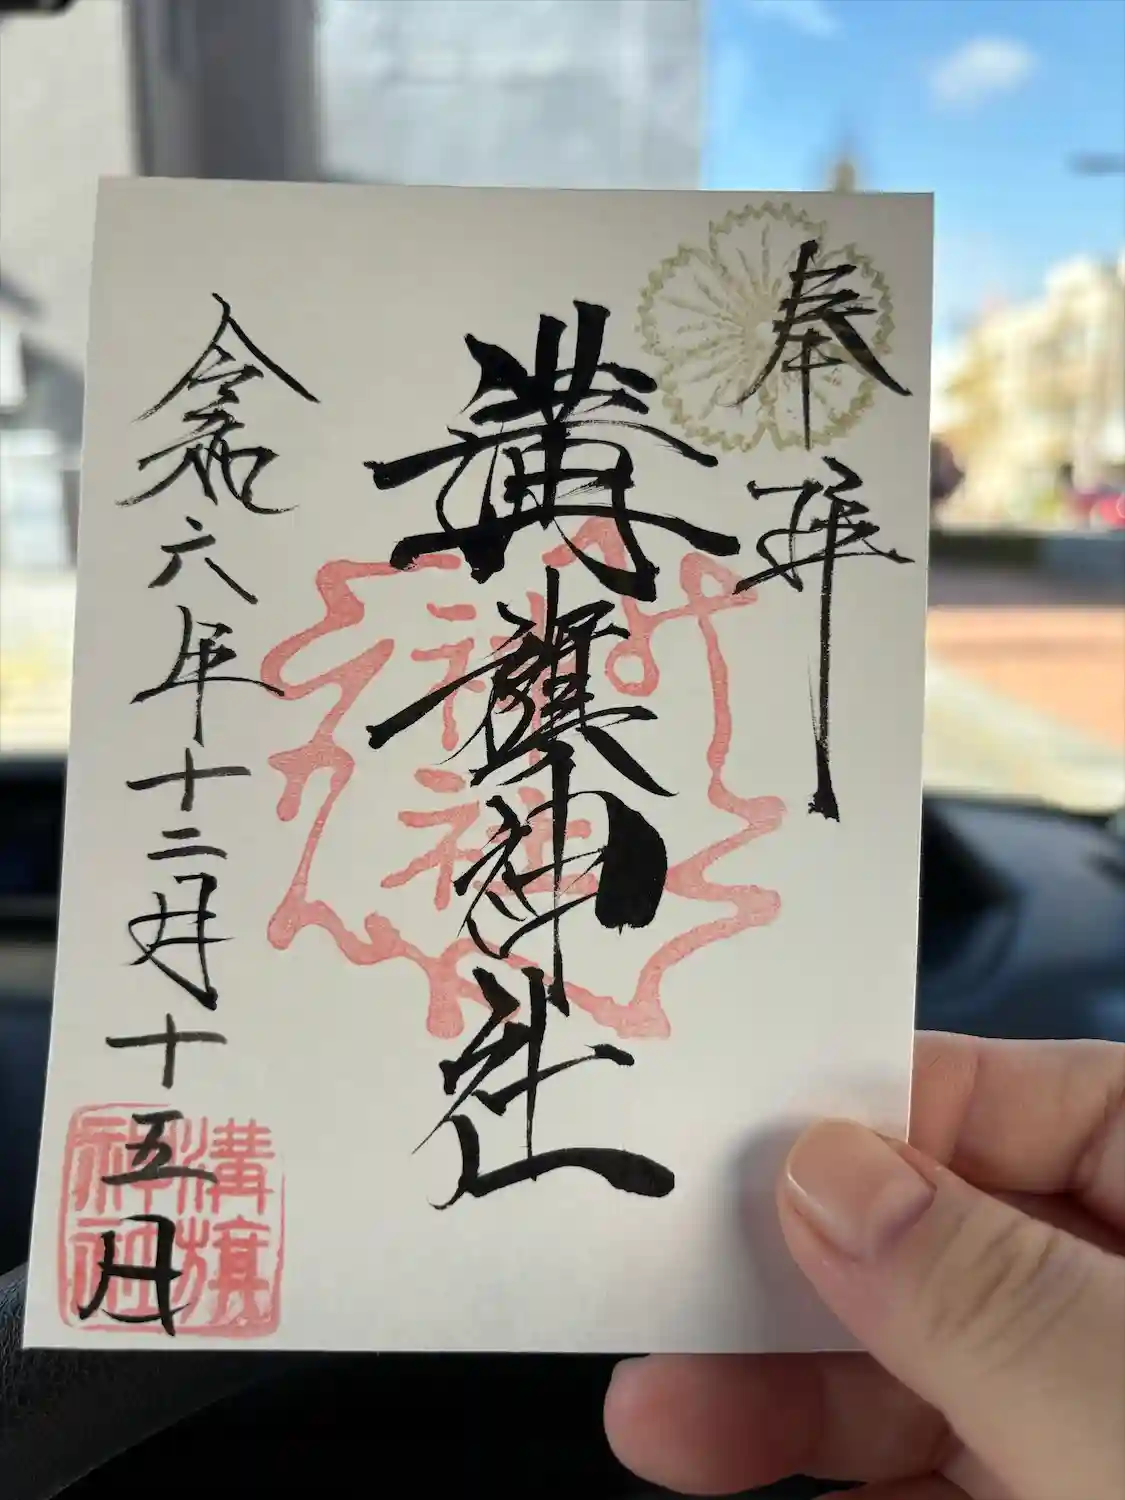 奉拝
溝旗神社
神社
令和六年十二月十五日
溝旗
神社